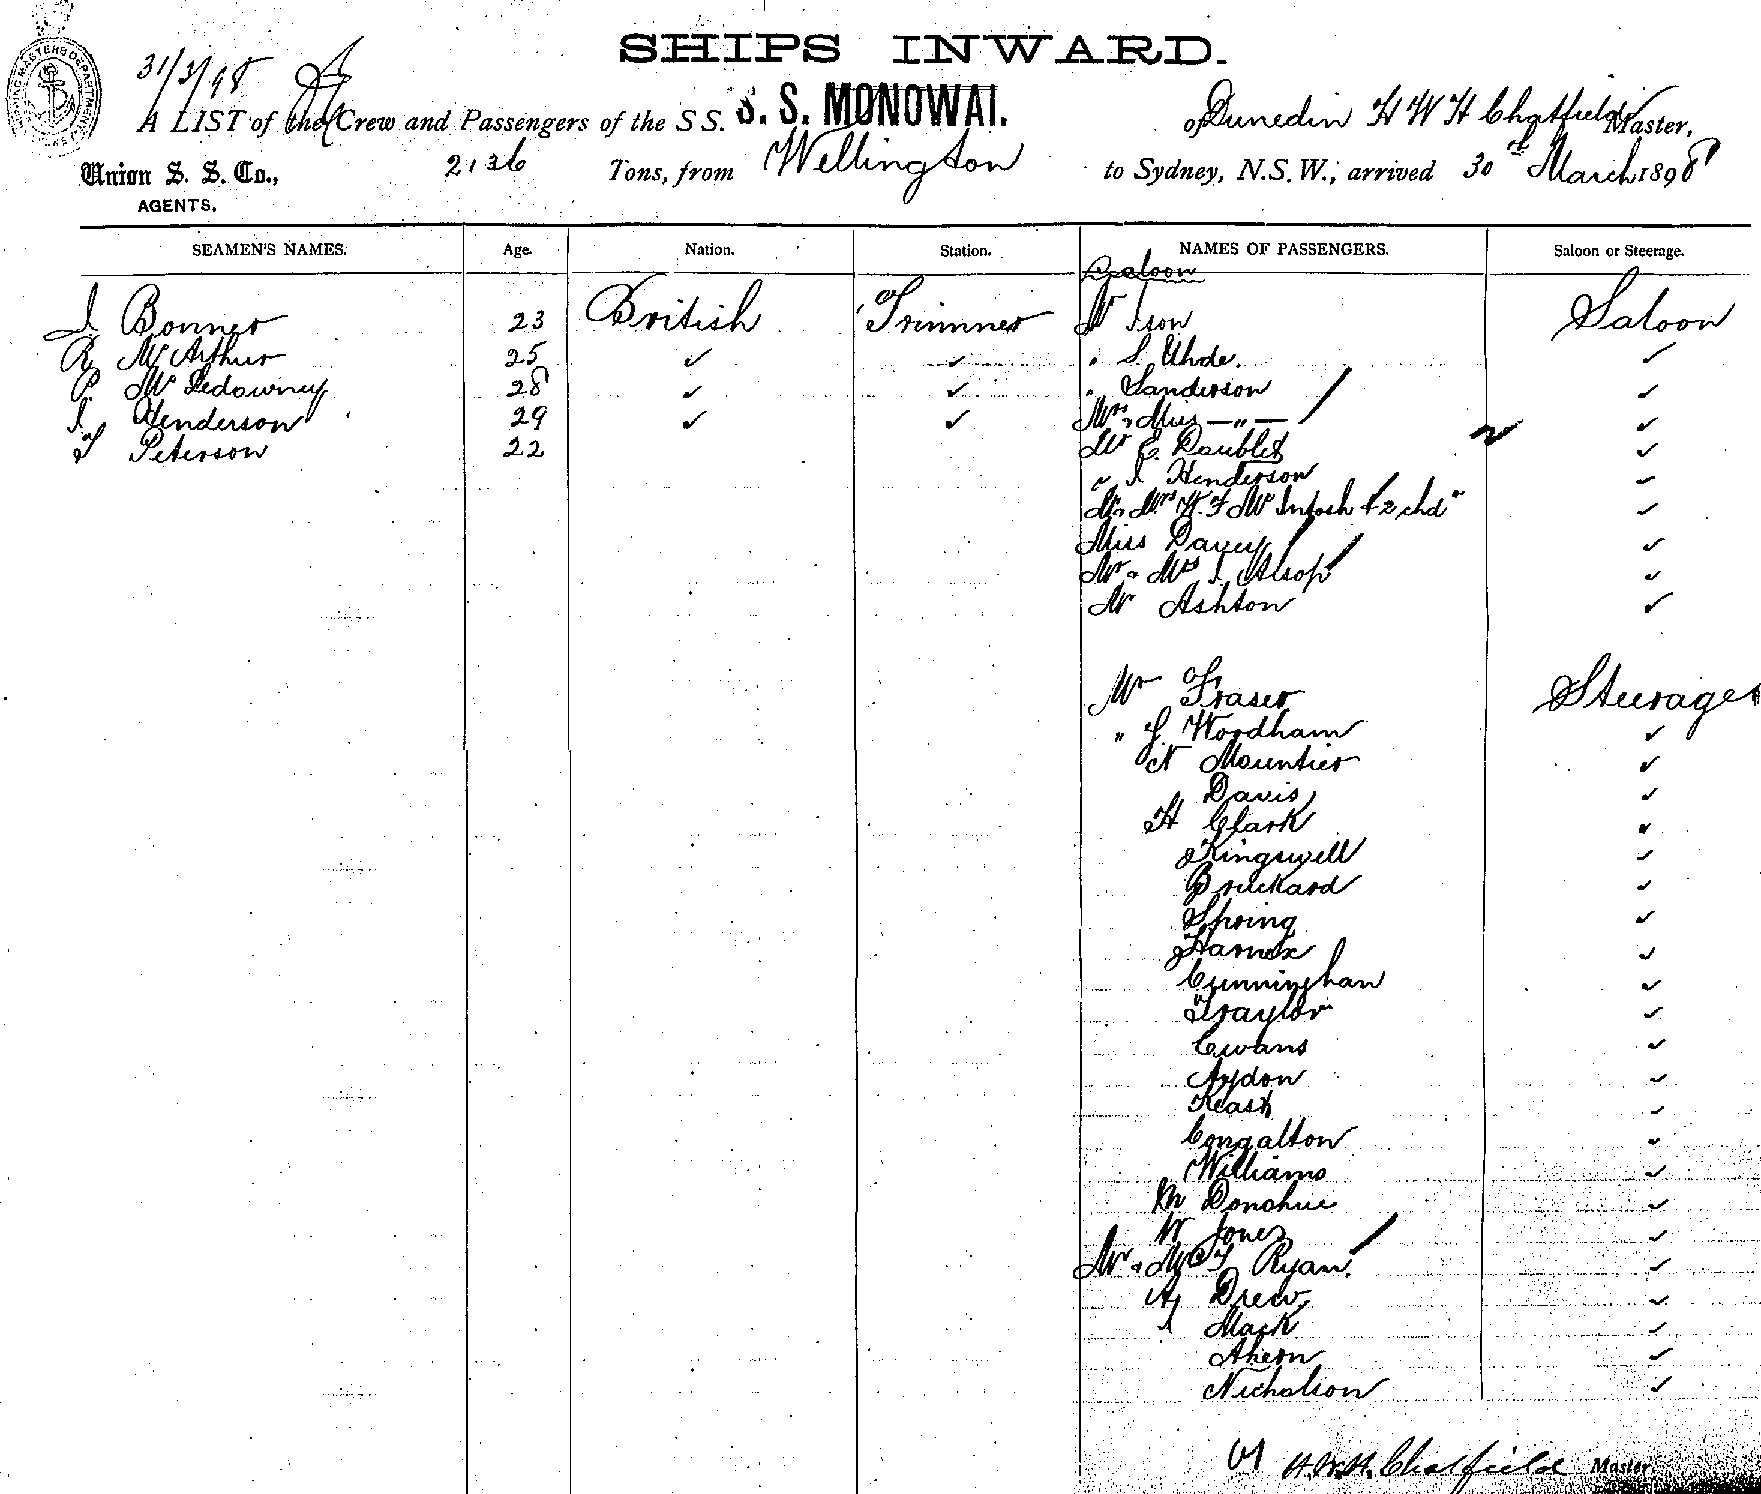 SHIPS INWARD.
31/3/98
A LIST of the Crew and Passengers of the S S. S. S. MONOWAI. of Dunedin H W H Chatfield Master,
Union S. S. Co., 2136 Tons, from Wellington to Sydney, N.S.W., arrived 30th March 1898
AGENTS.
SEAMEN'S NAMES. Age. Nation. Station. NAMES OF PASSENGERS. Saloon or Steerage.
Saloon
J. Bonner 23 British Trimmer Mr Ison Saloon
R McArthur 25 ✓ ✓ " S. Uhde. ✓
P. Mc 28 ✓ ✓ " Sanderson ✓
J. Henderson 29 ✓ ✓ Mrs, Miss —"— ✓
T Peterson 22 Mr E. Doublet ✓
" J. Henderson ✓
Mr, Mrs W. F McIntosh & 2 chdn ✓
Miss Davey ✓
Mr & Mrs J. Alsop ✓
Mr Ashton ✓
Mr Fraser Steerage
" J Woodham ✓
N Mountier ✓
Davis ✓
H Clark ✓
Kingswell ✓
Brickard ✓
Spring ✓
✓
Cunningham ✓
Traylor ✓
Evans ✓
Aydon ✓
Keast ✓
Congalton ✓
Williams ✓
M Donohue ✓
W Jones ✓
Mr & Mrs T Ryan. ✓
A Drew ✓
J Mack ✓
Ahern ✓
Nicholson ✓
H.W.H. Chatfield Master